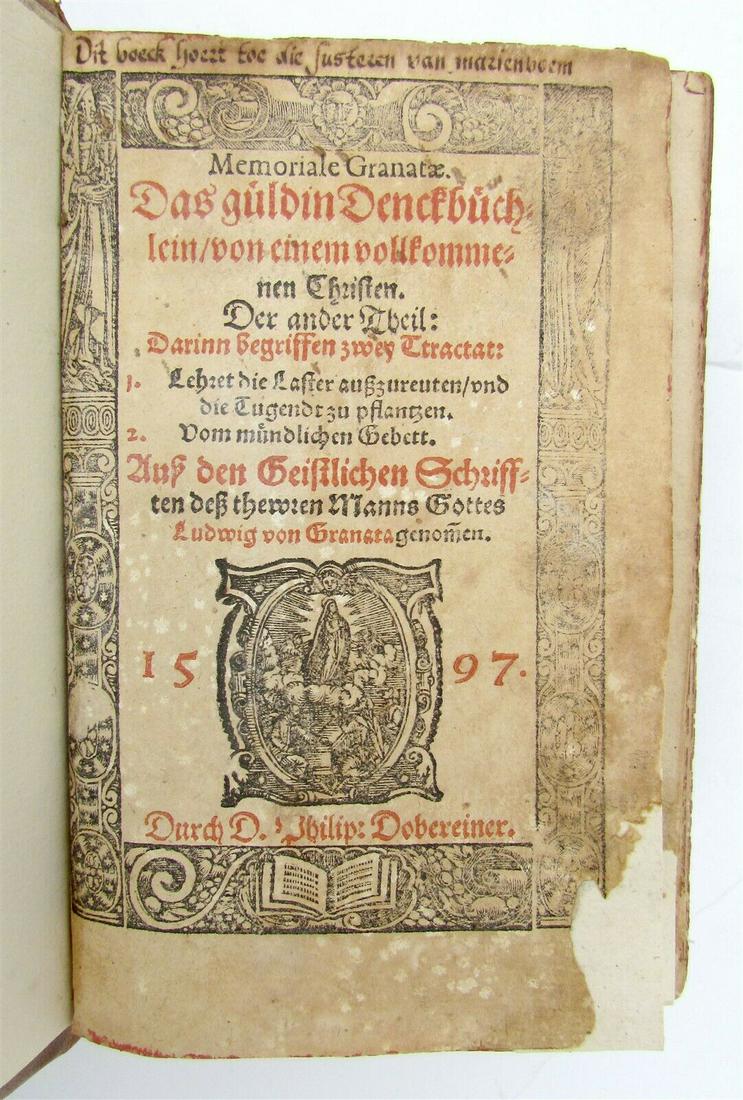 Dit boeck hoert toe die susteren van marienboem
Memoriale Granatæ.
Das güldin Denckbüch-
lein/von einem vollkomme-
nen Christen.
Der ander Theil:
Darinn begriffen zwey Ttractat:
1. Lehret die Laster außzureuten/vnd
die Tugendt zu pflantzen.
2. Vom mündlichen Gebett.
Auß den Geistlichen Schriff-
ten deß thewren Manns Gottes
Ludwig von Granata genom̃en.
15 97.
Durch D. Philip: Dobereiner.